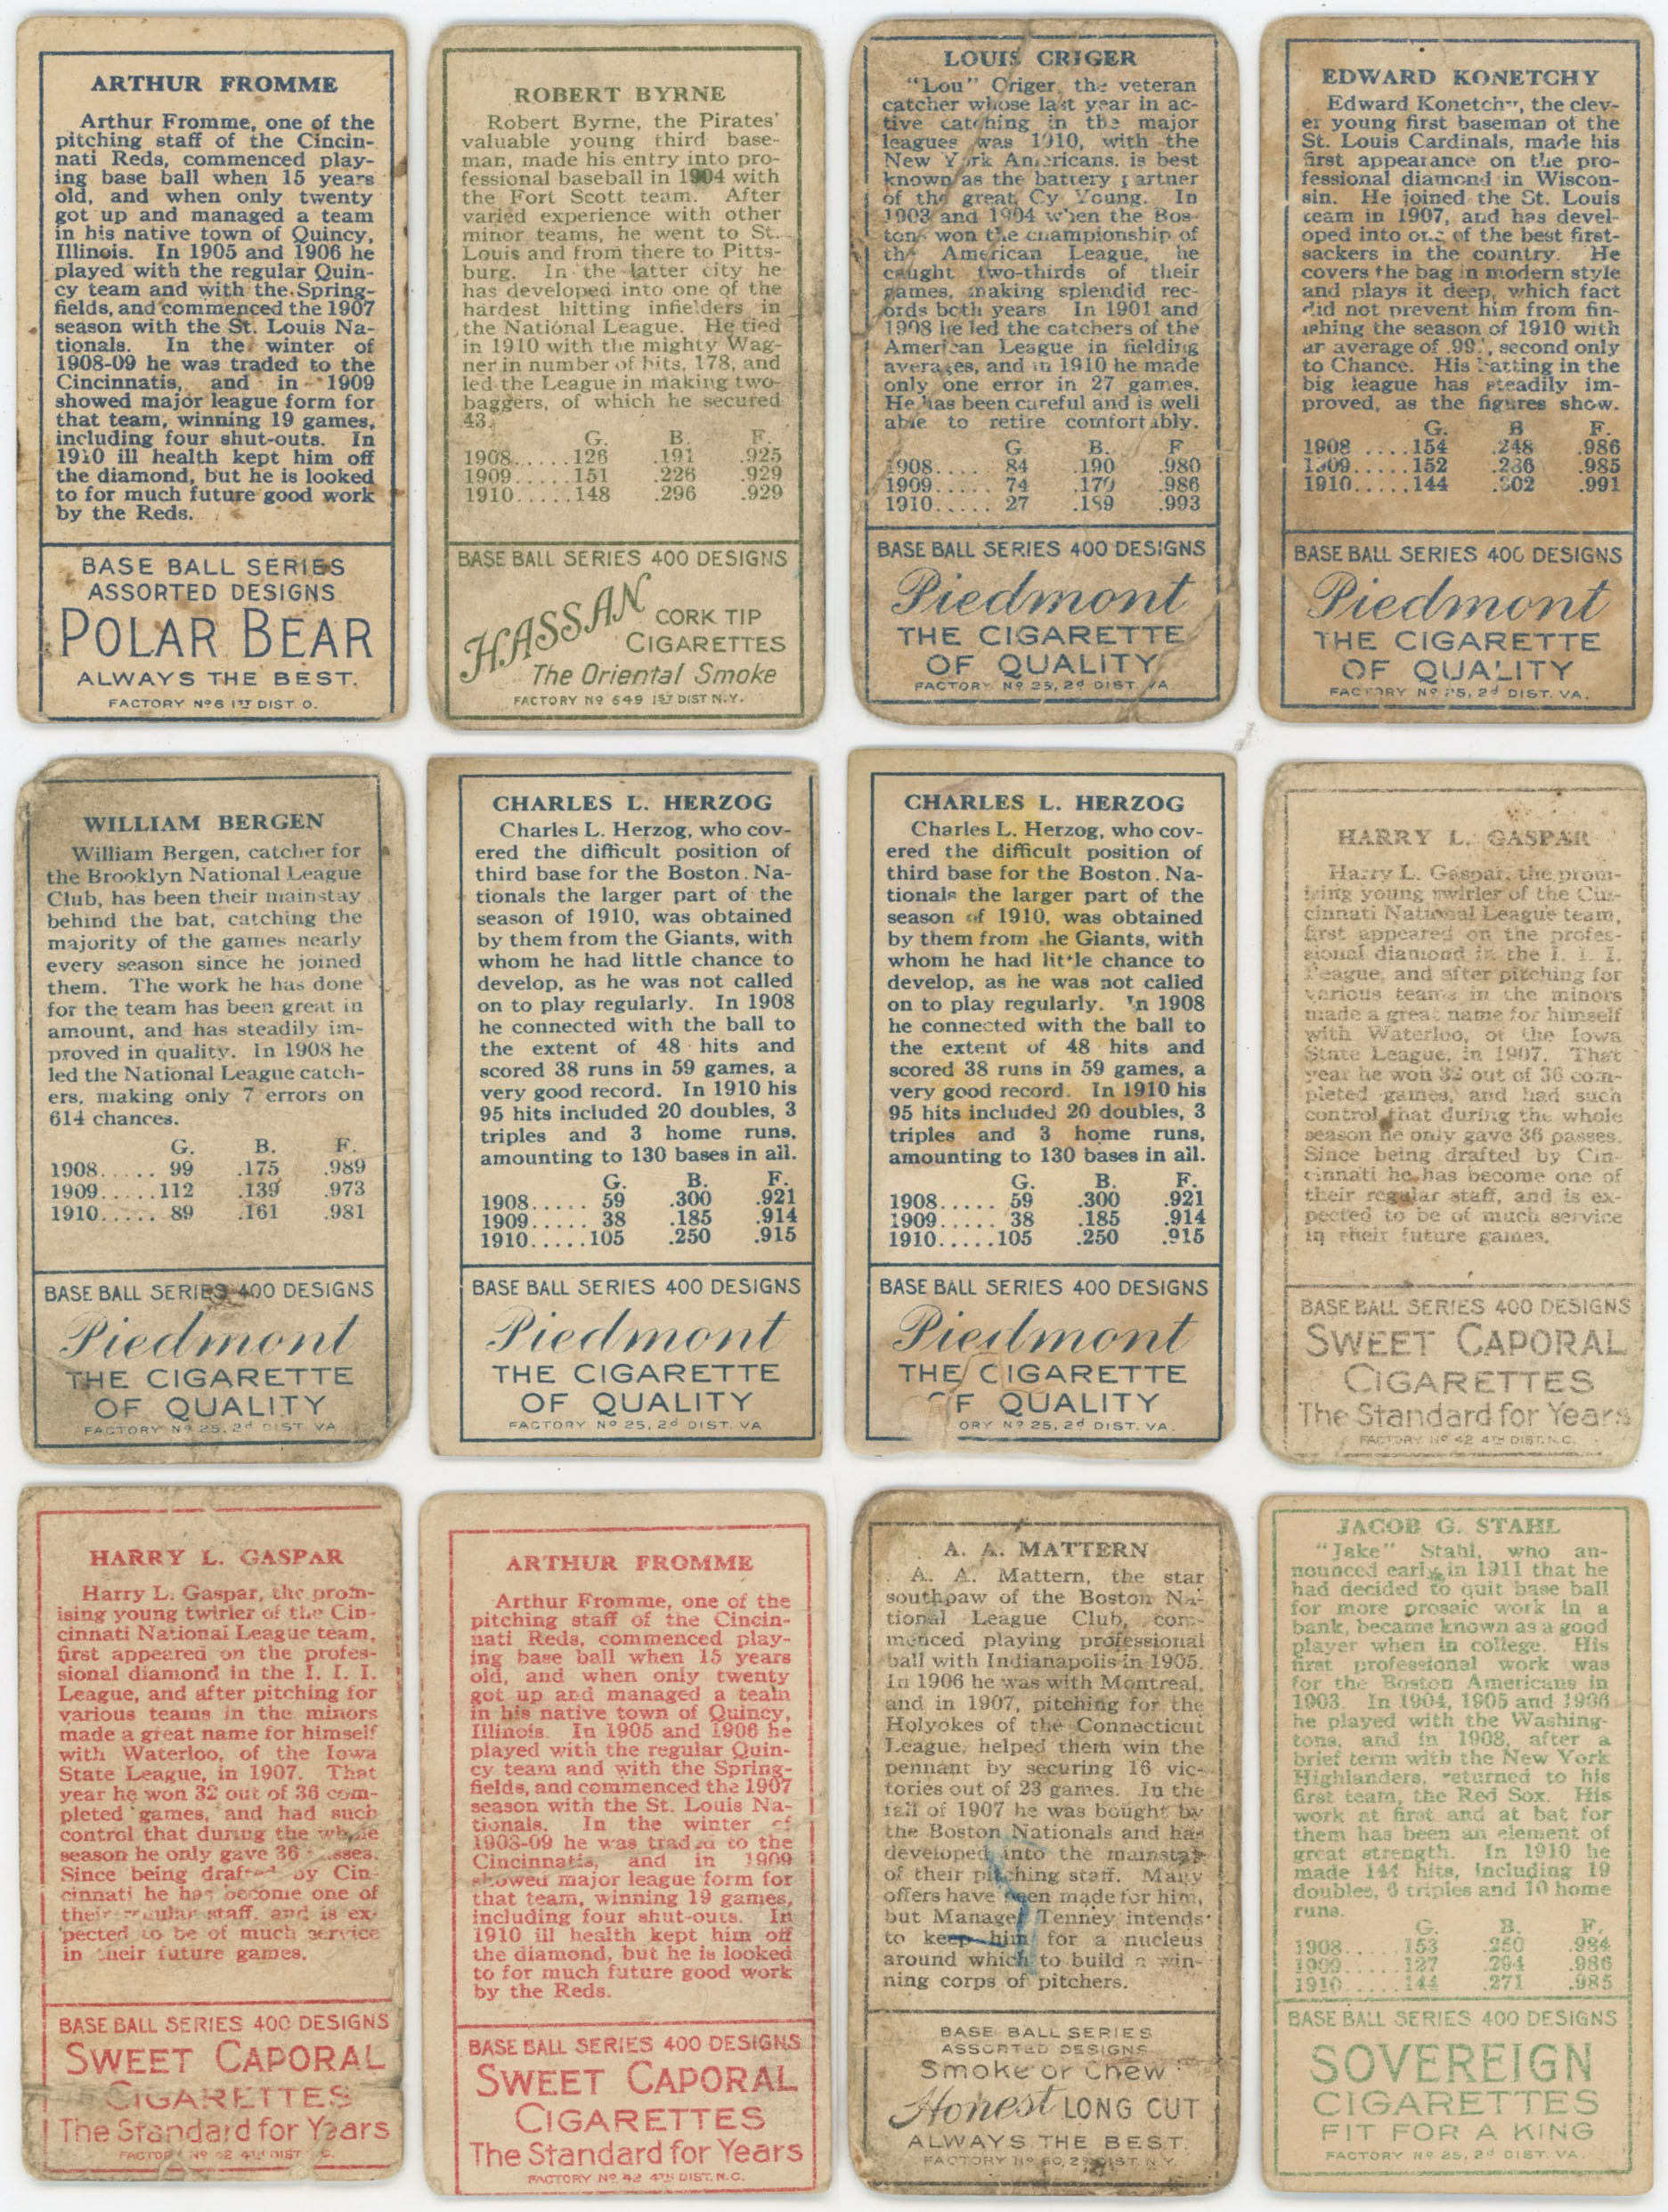 ARTHUR FROMME
Arthur Fromme, one of the
pitching staff of the Cincin-
nati Reds, commenced play-
ing base ball when 15 years
old, and when only twenty
got up and managed a team
in his native town of Quincy,
Illinois. In 1905 and 1906 he
played with the regular Quin-
cy team and with the Spring-
fields, and commenced the 1907
season with the St. Louis Na-
tionals. In the winter of
1908-09 he was traded to the
Cincinnatis, and in 1909
showed major league form for
that team, winning 19 games,
including four shut-outs. In
1910 ill health kept him off
the diamond, but he is looked
to for much future good work
by the Reds.
BASE BALL SERIES
ASSORTED DESIGNS
POLAR BEAR
ALWAYS THE BEST.
FACTORY Nº 6 1ST DIST O.
ROBERT BYRNE
Robert Byrne, the Pirates'
valuable young third base-
man, made his entry into pro-
fessional baseball in 1904 with
the Fort Scott team. After
varied experience with other
minor teams, he went to St.
Louis and from there to Pitts-
burg. In the latter city he
has developed into one of the
hardest hitting infielders in
the National League. He tied
in 1910 with the mighty Wag-
ner in number of hits, 178, and
led the League in making two-
baggers, of which he secured
43.
G. B. F.
1908.....126 .191 .925
1909.....151 .226 .929
1910.....148 .296 .929
BASE BALL SERIES 400 DESIGNS
HASSAN CORK TIP
CIGARETTES
The Oriental Smoke
FACTORY Nº 649 1ST DIST N.Y.
LOUIS CRIGER
"Lou" Criger, the veteran
catcher whose last year in ac-
tive catching in the major
leagues was 1910, with the
New York Americans, is best
known as the battery partner
of the great Cy Young. In
1903 and 1904 when the Bos-
tons won the championship of
the American League, he
caught two-thirds of their
games, making splendid rec-
ords both years. In 1901 and
1908 he led the catchers of the
American League in fielding
averages, and in 1910 he made
only one error in 27 games.
He has been careful and is well
able to retire comfortably.
G. B. F
1908.... 84 .190 .980
1909.... 74 .170 .986
1910..... 27 .189 .993
BASE BALL SERIES 400 DESIGNS
Piedmont
THE CIGARETTE
OF QUALITY
FACTORY Nº 25, 2d DIST. VA.
EDWARD KONETCHY
Edward Konetchy, the clev-
er young first baseman of the
St. Louis Cardinals, made his
first appearance on the pro-
fessional diamond in Wiscon-
sin. He joined the St. Louis
team in 1907, and has devel-
oped into one of the best first-
sackers in the country. He
covers the bag in modern style
and plays it deep, which fact
did not prevent him from fin-
ishing the season of 1910 with
an average of second only
to Chance. His batting in the
big league has steadily im-
proved, as the figures show.
G. B F.
1908 ....154 .248 .986
1909.....152 .286 .985
1910.....144 .302 .991
BASE BALL SERIES 400 DESIGNS
Piedmont
THE CIGARETTE
OF QUALITY
FACTORY Nº 25, 2d DIST. VA.
WILLIAM BERGEN
William Bergen, catcher for
the Brooklyn National League
Club, has been their mainstay
behind the bat, catching the
majority of the games nearly
every season since he joined
them. The work he has done
for the team has been great in
amount, and has steadily im-
proved in quality. In 1908 he
led the National League catch-
ers, making only 7 errors on
614 chances.
G. B. F.
1908..... 99 .175 .989
1909.....112 .139 .973
1910..... 89 .161 .981
BASE BALL SERIES 400 DESIGNS
Piedmont
THE CIGARETTE
OF QUALITY
FACTORY Nº 25, 2d DIST. VA
CHARLES L. HERZOG
Charles L. Herzog, who cov-
ered the difficult position of
third base for the Boston Na-
tionals the larger part of the
season of 1910, was obtained
by them from the Giants, with
whom he had little chance to
develop, as he was not called
on to play regularly. In 1908
he connected with the ball to
the extent of 48 hits and
scored 38 runs in 59 games, a
very good record. In 1910 his
95 hits included 20 doubles, 3
triples and 3 home runs,
amounting to 130 bases in all.
G. B. F.
1908...... 59 .300 .921
1909...... 38 .185 .914
1910.....105 .250 .915
BASE BALL SERIES 400 DESIGNS
Piedmont
THE CIGARETTE
OF QUALITY
FACTORY Nº 25, 2d DIST. VA
CHARLES L. HERZOG
Charles L. Herzog, who cov-
ered the difficult position of
third base for the Boston Na-
tionals the larger part of the
season of 1910, was obtained
by them from the Giants, with
whom he had little chance to
develop, as he was not called
on to play regularly. In 1908
he connected with the ball to
the extent of 48 hits and
scored 38 runs in 59 games, a
very good record. In 1910 his
95 hits included 20 doubles, 3
triples and 3 home runs,
amounting to 130 bases in all.
G. B. F.
1908...... 59 .300 .921
1909...... 38 .185 .914
1910.....105 .250 .915
BASE BALL SERIES 400 DESIGNS
Piedmont
THE CIGARETTE
OF QUALITY
ORY Nº 25, 2d DIST. VA.
HARRY L. GASPAR
Harry L. Gaspar, the prom-
ising young twirler of the Cin-
cinnati National League team,
first appeared on the profes-
sional diamond in the I. I. I.
League, and after pitching for
various teams in the minors
made a great name for himself
with Waterloo, of the Iowa
State League, in 1907. That
year he won 32 out of 36 com-
pleted games, and had such
control that during the whole
season he only gave 36 passes.
Since being drafted by Cin-
cinnati he has become one of
their regular staff, and is ex-
pected to be of much service
in their future games.
BASE BALL SERIES 400 DESIGNS
SWEET CAPORAL
CIGARETTES
The Standard for Years
FACTORY Nº 42 4TH DIST. N.C.
HARRY L. GASPAR
Harry L. Gaspar, the prom-
ising young twirler of the Cin-
cinnati National League team,
first appeared on the profes-
sional diamond in the I. I. I.
League, and after pitching for
various teams in the minors
made a great name for himself
with Waterloo, of the Iowa
State League, in 1907. That
year he won 32 out of 36 com-
pleted games, and had such
control that during the whole
season he only gave 36 passes.
Since being drafted by Cin-
cinnati he has become one of
their regular staff, and is ex-
pected to be of much service
in their future games.
BASE BALL SERIES 400 DESIGNS
SWEET CAPORAL
CIGARETTES
The Standard for Years
FACTORY Nº 42 4TH DIST C.
ARTHUR FROMME
Arthur Fromme, one of the
pitching staff of the Cincin-
nati Reds, commenced play-
ing base ball when 15 years
old, and when only twenty
got up and managed a team
in his native town of Quincy,
Illinois. In 1905 and 1906 he
played with the regular Quin-
cy team and with the Spring-
fields, and commenced the 1907
season with the St. Louis Na-
tionals. In the winter of
1908-09 he was traded to the
Cincinnatis, and in 1909
showed major league form for
that team, winning 19 games,
including four shut-outs. In
1910 ill health kept him off
the diamond, but he is looked
to for much future good work
by the Reds.
BASE BALL SERIES 400 DESIGNS
SWEET CAPORAL
CIGARETTES
The Standard for Years
FACTORY Nº 42 4TH DIST. N.C.
A. A. MATTERN
A. A. Mattern, the star
southpaw of the Boston Na-
tional League Club, com-
menced playing professional
ball with Indianapolis in 1905.
In 1906 he was with Montreal,
and in 1907, pitching for the
Holyokes of the Connecticut
League, helped them win the
pennant by securing 16 vic-
tories out of 23 games. In the
fall of 1907 he was bought by
the Boston Nationals and has
developed into the mainstay
of their pitching staff. Many
offers have been made for him,
but Manager Tenney intends
to keep him for a nucleus
around which to build a win-
ning corps of pitchers.
BASE BALL SERIES
ASSORTED DESIGNS
Smoke or Chew
Honest LONG CUT
ALWAYS THE BEST.
FACTORY Nº 60, 2d DIST. N.Y.
JACOB G. STAHL
"Jake" Stahl, who an-
nounced early in 1911 that he
had decided to quit base ball
for more prosaic work in a
bank, became known as a good
player when in college. His
first professional work was
for the Boston Americans in
1903. In 1904, 1905 and 1906
he played with the Washing-
tons, and in 1908, after a
brief term with the New York
Highlanders, returned to his
first team, the Red Sox. His
work at first and at bat for
them has been an element of
great strength. In 1910 he
made 144 hits, including 19
doubles, 6 triples and 10 home
runs.
G. B. F.
1908......153 .250 .984
1909......127 .294 .986
1910......144 .271 .985
BASE BALL SERIES 400 DESIGNS
SOVEREIGN
CIGARETTES
FIT FOR A KING
FACTORY Nº 25, 2d DIST. VA.